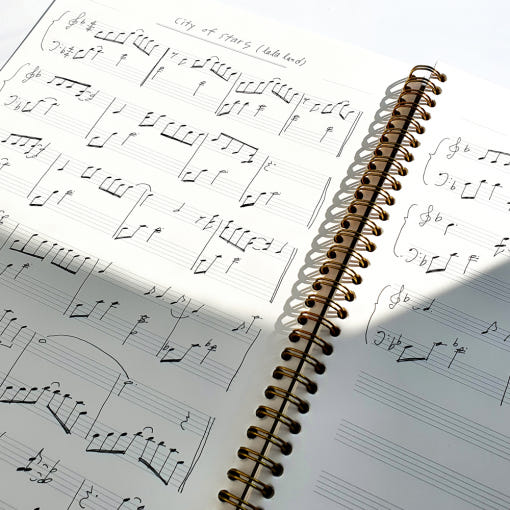 City of stars (la la land)